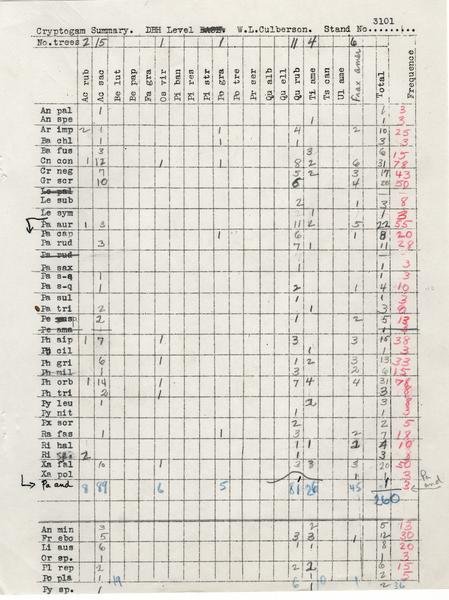 3101
Cryptogam Summary. DBH Level W.L.Culberson. Stand No.
No.trees 2 15 1 1 11 4 6
Ac rub Ac sac Be lut Be pap Fa gra Os vir Pi ban Pi res Pi str Po gra Po tre Pr ser Qu alb Qu ell Qu rub Ti ame Ts can Ul ame Frax amer Total Frequence
An pal 1 1 3
An spe 1 1 3
Ar imp 2 1 1 4 2 10 25
Ba chl 1 1 1 3 3
Ba fus 3 3 6 15
Cn con 1 12 1 1 8 2 6 31 78
Cr neg 7 5 2 3 17 43
Gr scr 10 6 4 20 50
Le pal
Le sub 2 1 3 8
Le sym 1 1 3
Pa aur 1 3 11 2 5 22 55
Pa cap 1 6 1 8 20
Pa rud 3 7 1 11 28
Pa rud
Pa sax 1 1 3
Pa s-q 1 1 3
Pa s-q 1 2 1 4 10
Pa sul 1 1 3
Pa tri 2 1 3 8
Pe 2 1 2 5 13
Pe ama
Ph aip 1 7 1 3 3 15 38
Ph cil 1 1 3
Ph gri 6 1 1 2 3 13 33
Ph mil 1 3 2 6 15
Ph orb 1 14 1 7 4 4 31 78
Ph tri 2 1 3 8
Py leu 1 2 3 8
Py nit 1 1 3
Px sor 2 2 5
Ra fas 1 1 3 2 7 18
Ri hal 1 1 2 4 10
Ri 2 1 3 8
Xa fal 10 1 3 3 3 20 50
Xa pol 1 1 3
Pa and 8 89 6 5 81 26 45 1 3 Pa and
260
An min 3 2 5 13
Fr ebo 5 3 3 1 12 30
Li aus 6 1 1 8 20
Or sp. 1 1 3
Pl rep 2 2 2 6 15
Po pla 1 19 6 10 1 2 5
Py sp. 1 1 2 36